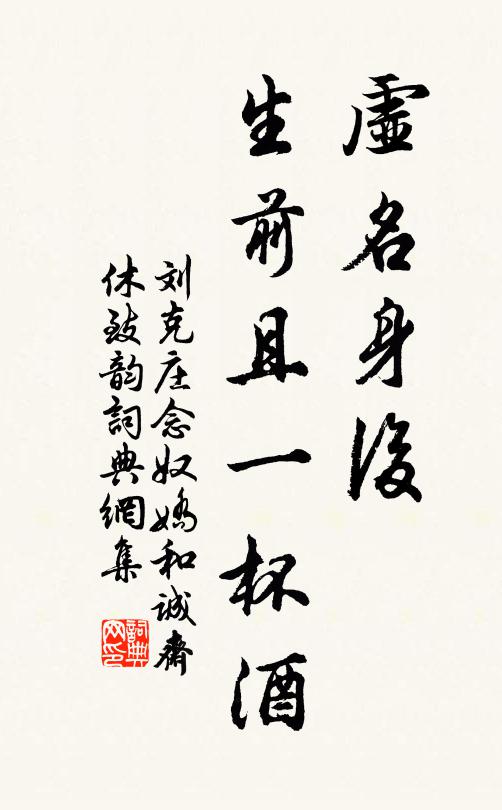 虛名身後
生前且一杯酒
刘克庄念奴嬌和誠齋
休致韵詞典網集
詞典网印